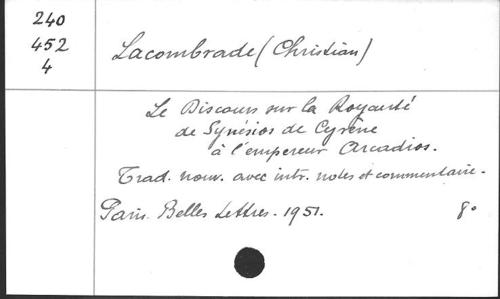 240
452
4
Lacombrade (Christian)
Le Discours sur la Royauté
de Synésios de Cyrène
à l'empereur Arcadios.
Trad. nouv. avec intr. notes et commentaire.
Paris. Belles Lettres. 1951. 8°